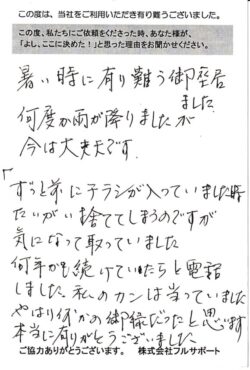 この度は、当社をご利用いただき有り難うございました。
この度、私たちにご依頼をくださった時、あなた様が、
「よし、ここに決めた！」と思った理由をお聞かせください。
暑い時に有り難う御座居
ました
何度か雨が降りましたが
今は大丈夫です。
「ずっと前にチラシが入っていました時
たいがい捨ててしまうのですが
気になって取っていました
何年かも続けていたらと電話
しました。私のカンは当っていました
やはり何かの御縁だったと思います
本当に有りがとうございました
ご協力ありがとうございます。　株式会社フルサポート